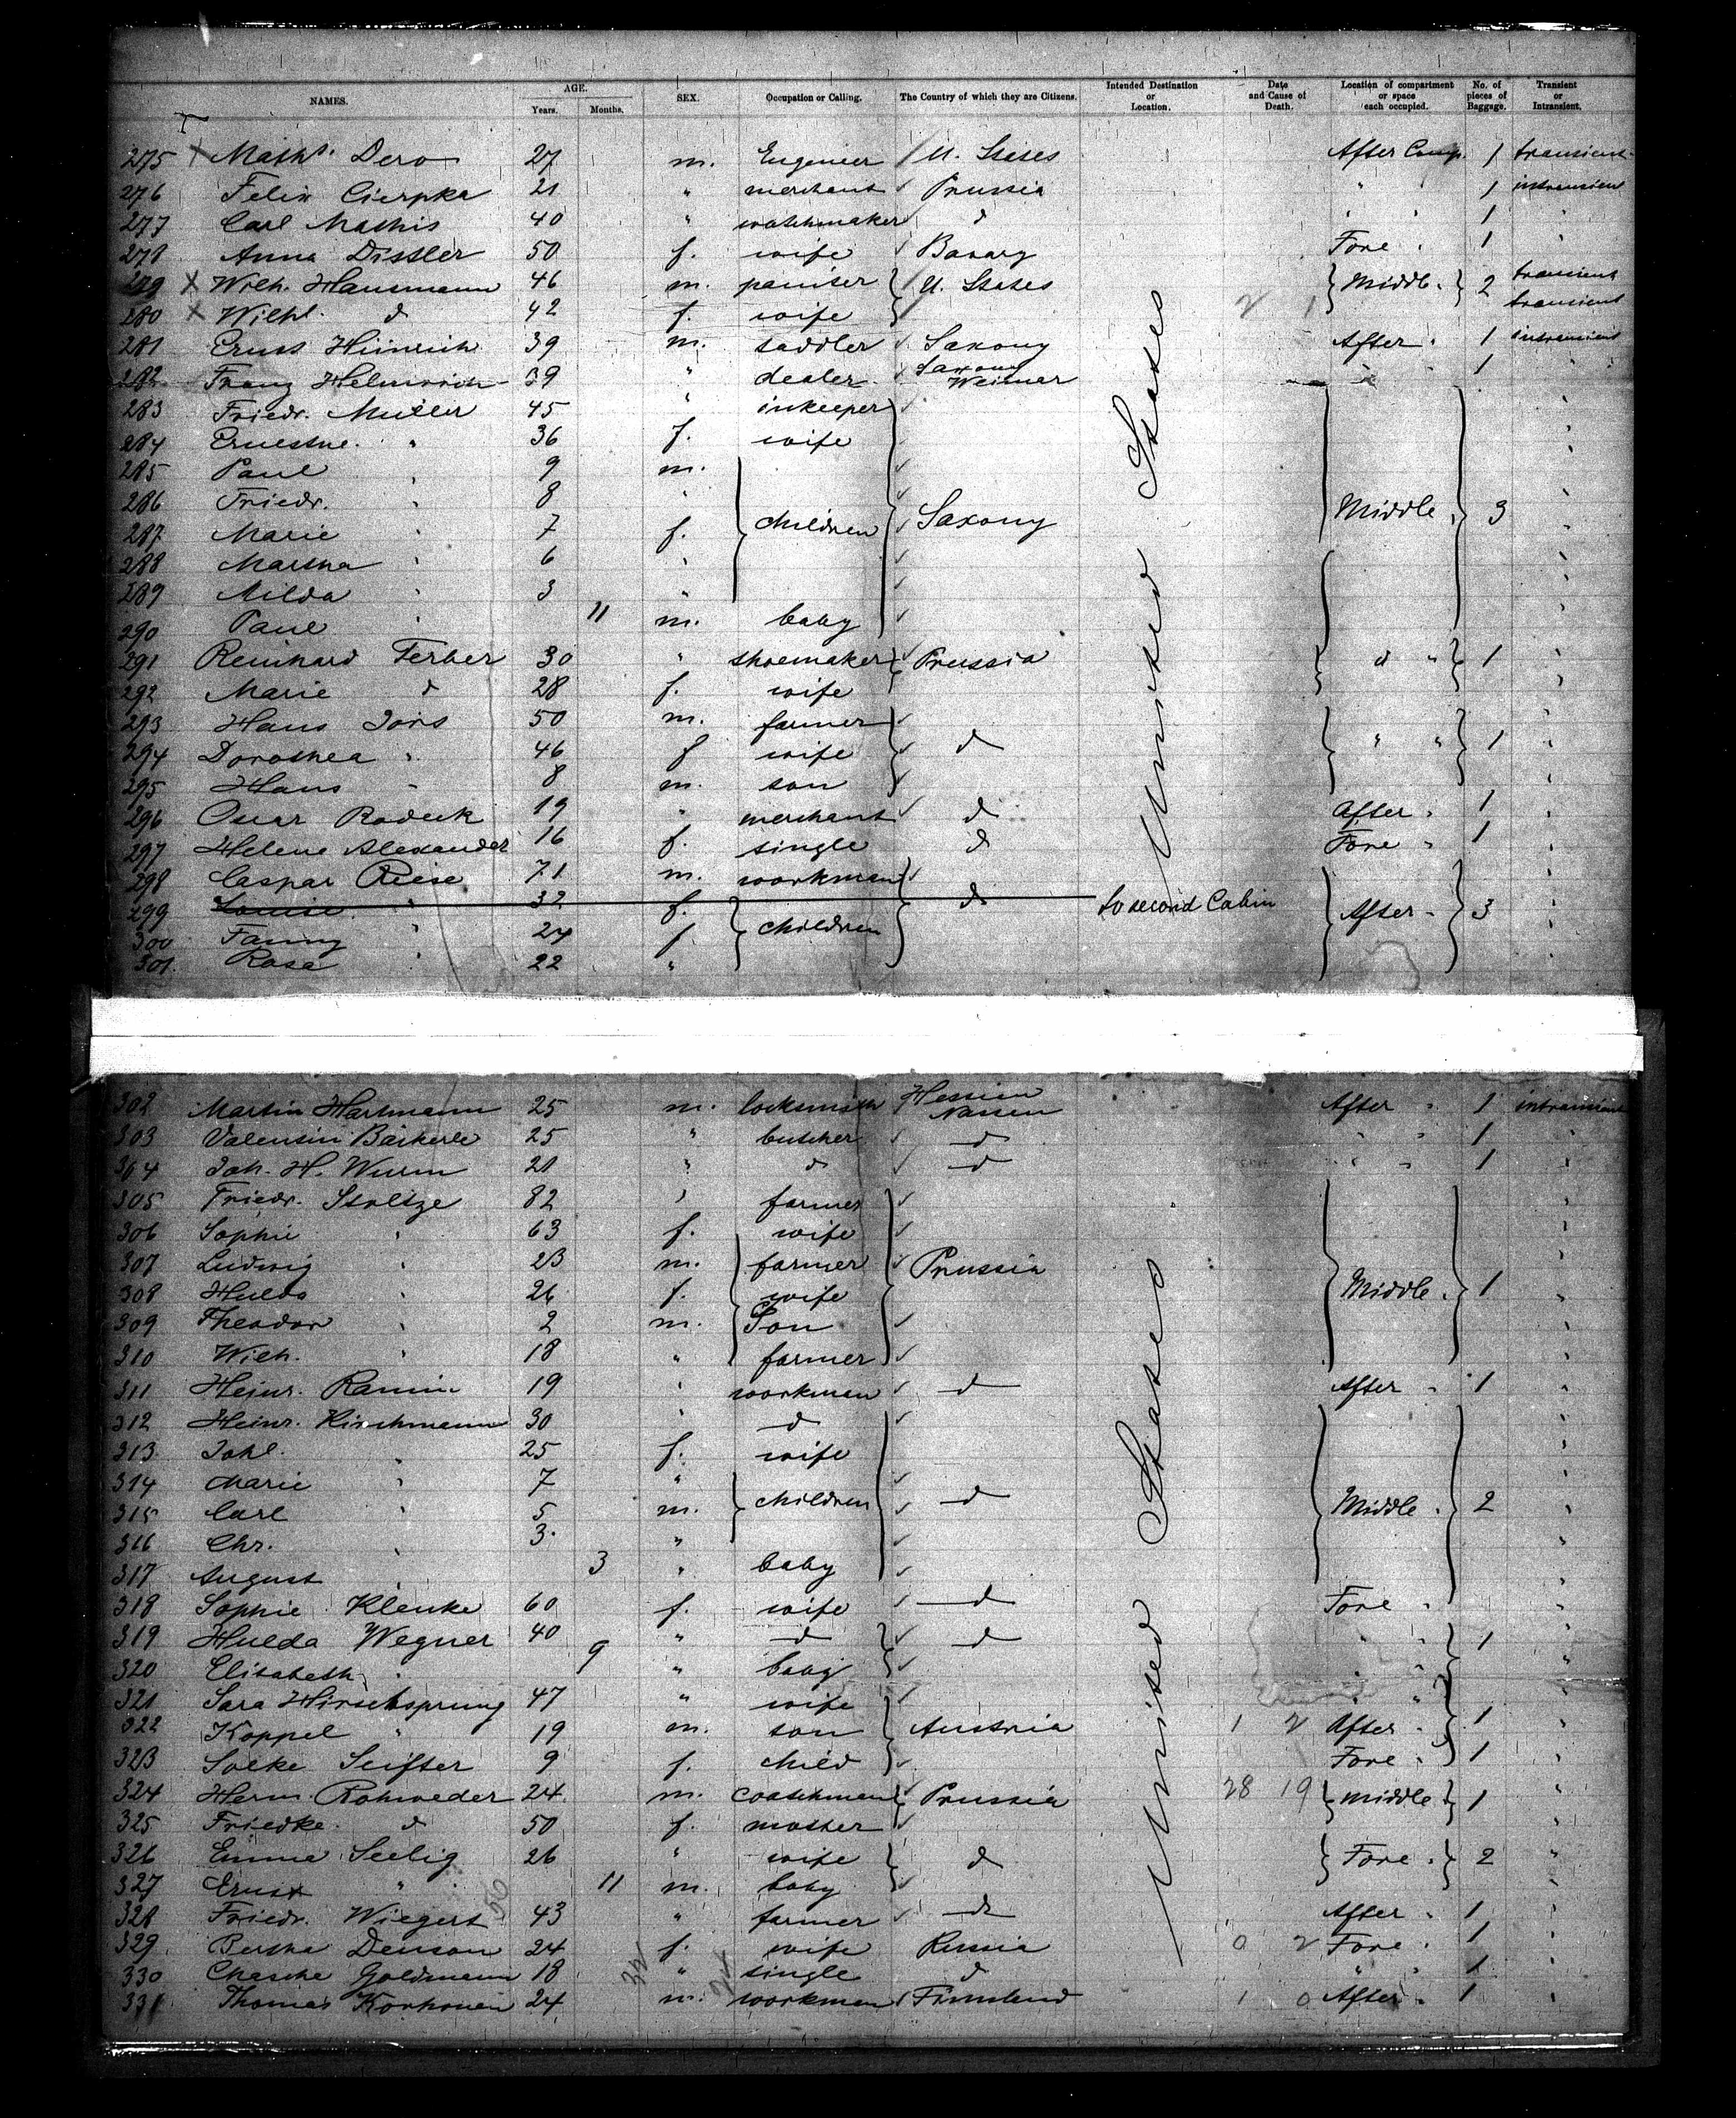 NAMES. AGE. Years. Months. SEX. Occupation or Calling. The Country of which they are Citizens. Intended Destination or Location. Date and Cause of Death. Location of compartment or space each occupied. No. of pieces of Baggage. Transient or Intransient.
275 X Maths. Dero 27 m. Engineer U. States After Comp. 1 transient
276 Felix Cierpka 21 " merchant Prussia " " 1 intransient
277 Carl Mathis 40 " watchmaker d " " 1 "
278 Anna Distler 50 f. wife Bavary Fore " 1 "
279 X Wilh. Hausmann 46 m. painter U. States Middle " 2 transient
280 X Wilh. d 42 f. wife transient
281 Ernst Heinrich 39 m. saddler Saxony After " 1 intransient
282 Franz 39 " dealer Saxony Weimer " " 1 "
283 Friedr. Müller 45 " inkeeper "
284 Ernestne. " 36 f. wife "
285 Paul " 9 m. "
286 Friedr. " 8 " "
287 Marie " 7 f. children Saxony Middle " 3 "
288 Martha " 6 " "
289 Milda " 3 " "
290 Paul " 11 m. baby "
291 Reinhard Ferber 30 " shoemaker Prussia d " 1 "
292 Marie d 28 f. wife "
293 Hans Jörs 50 m. farmer "
294 Dorothea " 46 f wife d " " 1 "
295 Hans " 8 m. son "
296 Oscar Rodeck 19 " merchant d After " 1 "
297 Helene Alexander 16 f. single d Fore " 1 "
298 Caspar Riese 71 m. workman "
299 Louise " 32 f. d to second Cabin After " 3 "
300 Fanny " 24 f children "
301. Rosa " 22 " "
United States
302 Martin Hartmann 25 m. locksmith Hessen Nassau After " 1 intransient
303 Valentin Bäckerle 25 " butcher d " " 1 "
304 Joh. H. Wurm 21 " d d " " 1 "
305 Friedr. Stoltze 82 " farmer "
306 Sophie " 63 f. wife "
307 Ludwig " 23 m. farmer Prussia "
308 Hulda " 26 f. wife Middle " 1 "
309 Theodor " 2 m. Son "
310 Wilh. " 18 " farmer "
311 Heinr. Ramin 19 " workman d After " 1 "
312 Heinr. Hirschmann 30 " d "
313 Johe. " 25 f. wife "
314 Marie " 7 " "
315 Carl " 5 m. children d Middle " 2 "
316 Chr. " 3 " "
317 August " 3 " baby "
318 Sophie Klenke 60 f. wife d Fore " "
319 Hulda Wegner 40 " d d " " 1 "
320 Elisabeth " 9 " baby " " "
321 Sara Hirschsprung 47 " wife " " "
322 Koppel " 19 m. son Austria 1 2 After " 1 "
323 Solke Seifter 9 f. child Fore " 1 "
324 Herm. Rohweder 24 m. coatchman Prussia 28 19 middle " 1 "
325 Friedke. d 50 f. mother
326 Emma Seelig 26 " wife d Fore " 2 "
327 Ernst " 11 m. baby "
328 Friedr. Wiegert 43 " farmer d After " 1 "
329 Bertha Denson 24 f. wife Russia 0 2 Fore " 1 "
330 Chasche Goldmann 18 " single d " " 1 "
331 Thomas Korhonen 24 m. workman Finnland 1 0 After " 1 "
United States